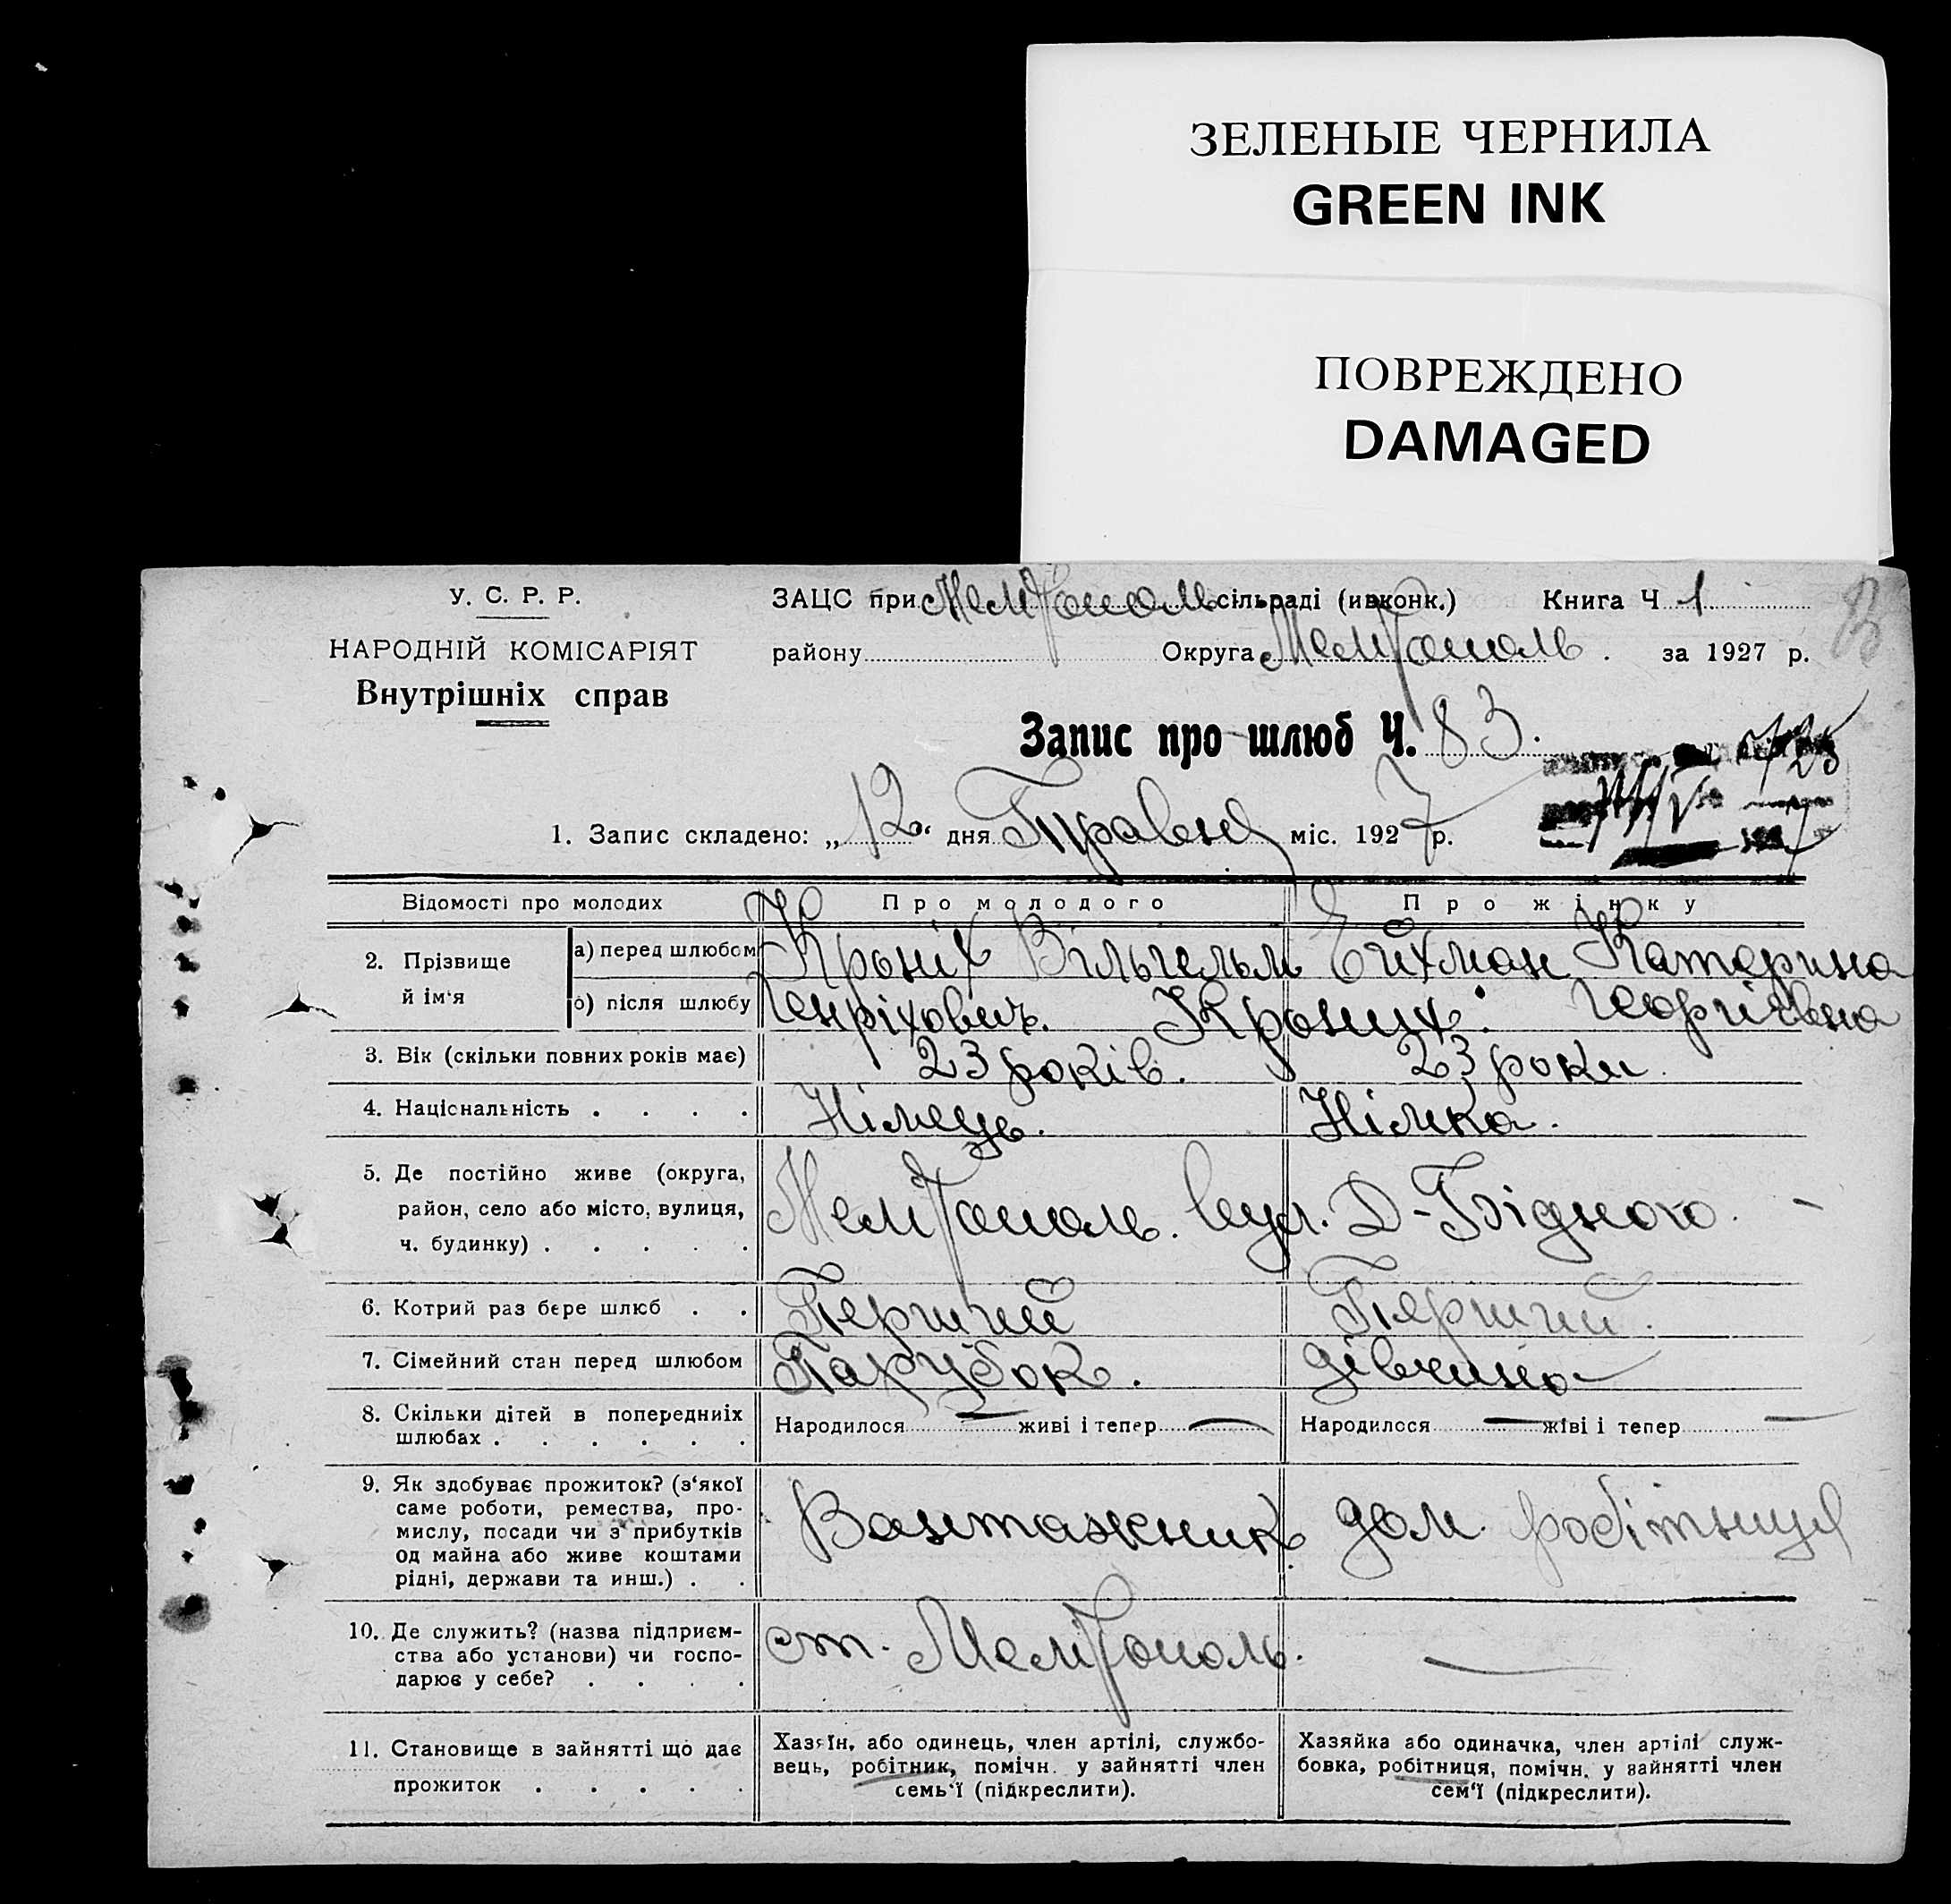 ЗЕЛЕНЫЕ ЧЕРНИЛА
GREEN INK
ПОВРЕЖДЕНО
DAMAGED
У. С. Р. Р.
НАРОДНІЙ КОМІСАРІЯТ
Внутрішніх справ
ЗАЦС при Мелітополь сільраді (ивконк.) Книга Ч 1
району Округа Мелітополь. за 1927 р.
Запис про шлюб Ч. 83.
1. Запис складено: „12“ дня Травня міс. 1927 р.
Відомості про молодих Про молодого Про жінку
2. Прізвище й ім‘я
а) перед шлюбом Кроніх Вільгельм Ейхман Катерина
б) після шлюбу Генріхович. Кроних. Георгієвна
3. Вік (скільки повних років має) 23 років. 23 роки.
4. Національність . . . . Німець. Німка.
5. Де постійно живе (округа,
район, село або місто, вулиця,
ч. будинку) . . . . . Мелітополь. вул. Д-Бідного. -
6. Котрий раз бере шлюб . . Перший Перший.
7. Сімейний стан перед шлюбом Парубок. дівчина
8. Скільки дітей в попередніх
шлюбах . . . . . . Народилося — живі і тепер — Народилося — живі і тепер —
9. Як здобуває прожиток? (з‘якої
саме роботи, ремества, про-
мислу, посади чи з прибутків
од майна або живе коштами
рідні, держави та инш.) . . Вантажник. дом. робітниця
10. Де служить? (назва підприєм-
ства або установи) чи госпо-
дарює у себе? . . . . ст. Мелітополь. —
11. Становище в зайнятті що дає
прожиток . . . . .
Хазяїн, або одинець, член артілі, службо-
вець, робітник, помічн. у зайнятті член
семь‘ї (підкреслити).
Хазяйка або одиначка, член артілі служ-
бовка, робітниця, помічн. у зайнятті член
сем‘ї (підкреслити).